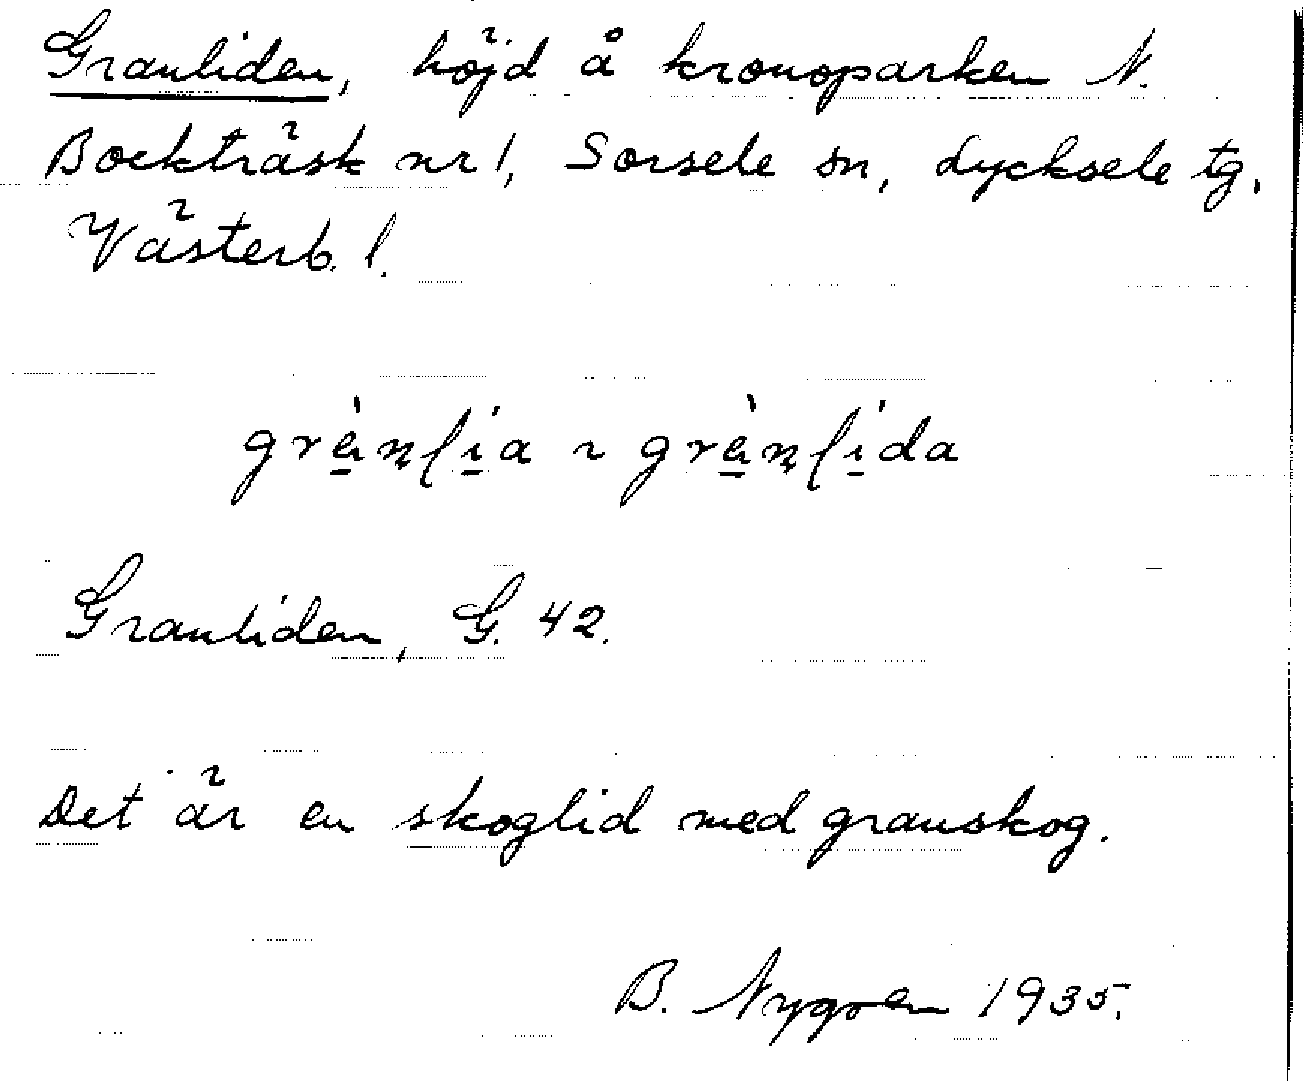 Granliden, höjd å kronoparken N.
Bockträsk nr 1, Sorsele sn, Lycksele tg,
Västerb. l.
grànlía ~ grànlída
Granliden, G. 42.
Det är en skoglid med granskog.
B. Nygren 1935.